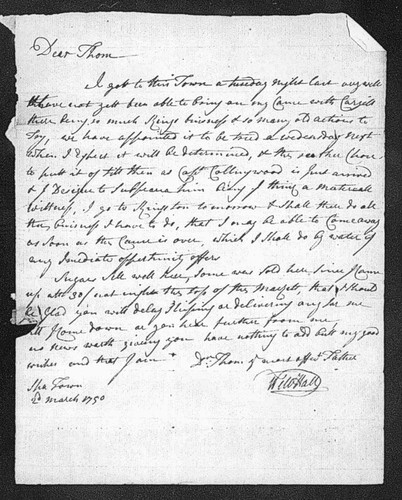 Dear Thom
I got to this Town a tuesday night last very well
have not yett been able to bring on my Cause with Cargill
there being so much Kings business & so many old actions to
Try, we have appointed it to be tried a wednesday next
when I Expect it will be determined, & the rather Chose
to put it of till then as Capt Collingwood is Just arrived
& I Designe to Subpoena him being I think a Materiale
Wittness, I go to Kingston tomorrow & shall there do all
the business I have to do, that I may be able to Come away
as soon as the Cause is over, which I shall do by water if
any Imediate opportunity offers
Sugars Sell well here, some was sold here since I Came
up att 30/ the top of the Markett, that I should
be Glad you will delay Shipping or delivering any for me
till I Come down or you hear further from me
no news worth giveing you have nothing to add butt my good
wishes and that I am Dr. Thom yr most affect Father
Wm Hall
Spa Town
2d March 1750